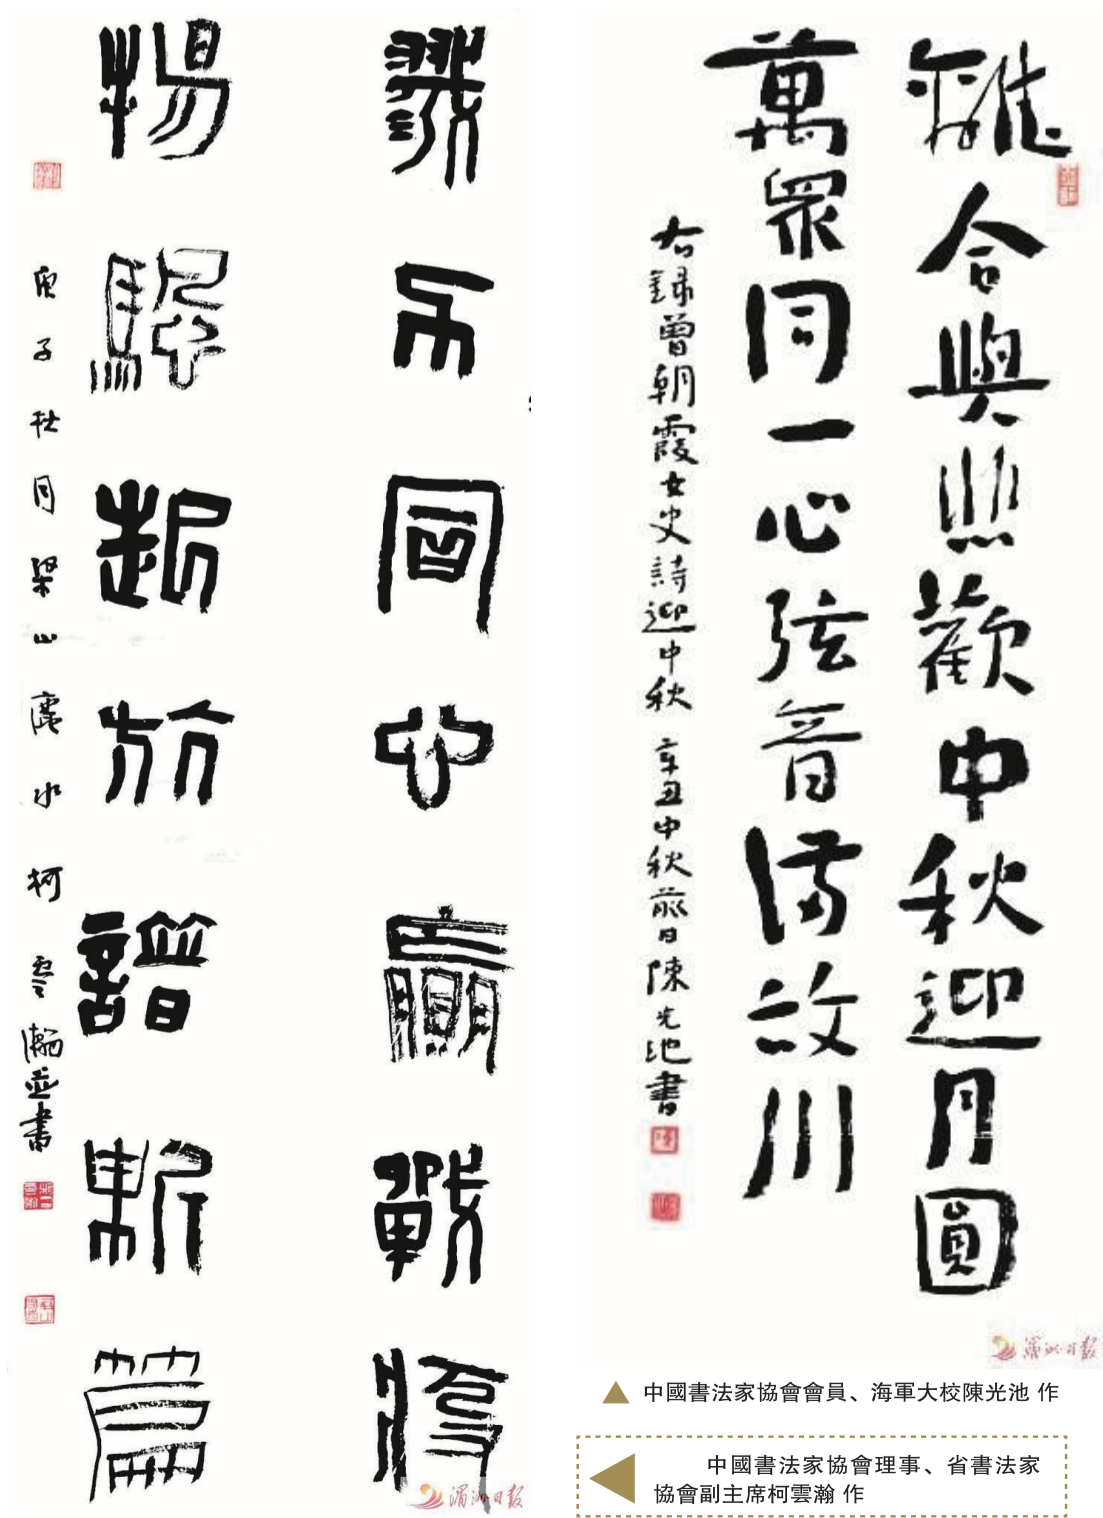 離合與悲歡中秋迎月圓
萬眾同一心弦音滿故川
右錄曾朝霞女史詩迎中秋 辛丑中秋前日陳光池書
戮力同心贏戰疫
揚颿起斻譜新篇
庚子秋月梁山水柯雲瀚並書
湄洲日報
中國書法家協會會員、海軍大校陳光池 作
中國書法家協會理事、省書法家
協會副主席柯雲瀚 作
湄洲日報